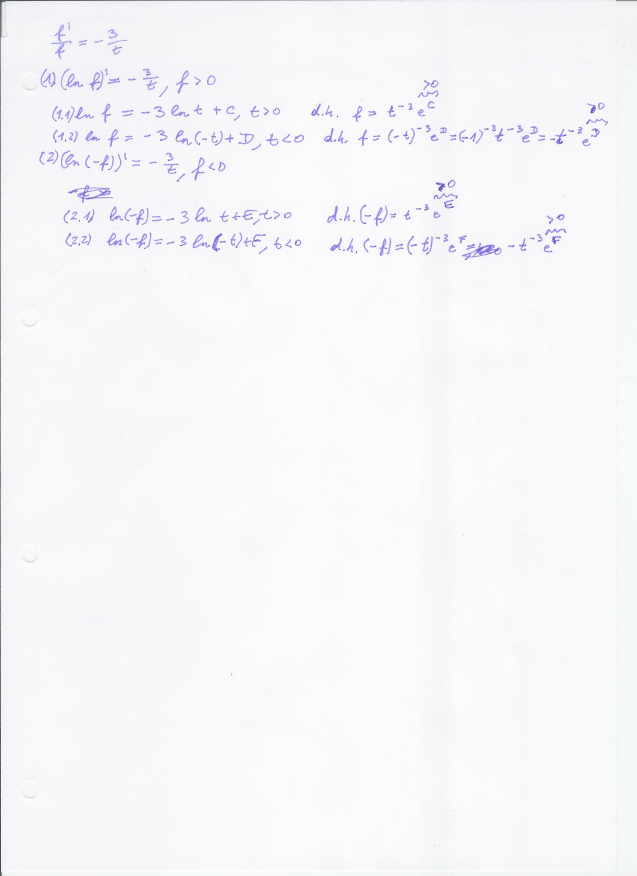 f'/f = - 3/t
(1) (ln f)' = - 3/t, f > 0
(1.1) ln f = -3 ln t + C, t > 0 d.h. f = t^{-3} e^C >0
(1.2) ln f = -3 ln(-t) + D, t < 0 d.h. f = (-t)^{-3} e^D = (-1)^{-3} t^{-3} e^D = -t^{-3} e^D >0
(2) (ln (-f))' = - 3/t, f < 0
(2.1) ln(-f) = -3 ln t + E, t > 0 d.h. (-f) = t^{-3} e^E >0
(2.2) ln(-f) = -3 ln(-t) + F, t < 0 d.h. (-f) = (-t)^{-3} e^F = - t^{-3} e^F >0